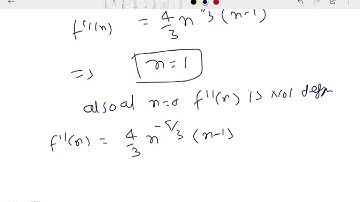 f''(n) = 4/3 n^5/3 (n-1)
=> n=1
also at n=0 f''(n) is not defn
f''(n) = 4/3 n^-5/3 (n-1)